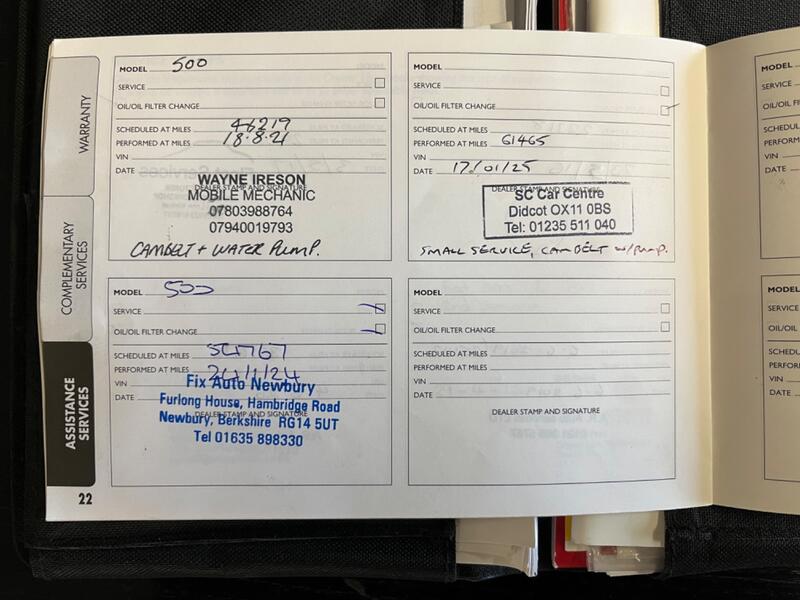 WARRANTY
COMPLEMENTARY SERVICES
ASSISTANCE SERVICES
22
MODEL 500
SERVICE
OIL/OIL FILTER CHANGE
SCHEDULED AT MILES 46219
PERFORMED AT MILES 18.8.21
VIN
DATE
DEALER STAMP AND SIGNATURE
WAYNE IRESON
MOBILE MECHANIC
07803988764
07940019793
CAMBELT + WATER PUMP.
MODEL
SERVICE
OIL/OIL FILTER CHANGE
SCHEDULED AT MILES
PERFORMED AT MILES 61465
VIN
DATE 17/01/25
DEALER STAMP AND SIGNATURE
SC Car Centre
Didcot OX11 0BS
Tel: 01235 511 040
SMALL SERVICE, CAMBELT w/pump.
MODEL 500
SERVICE
OIL/OIL FILTER CHANGE
SCHEDULED AT MILES
PERFORMED AT MILES
VIN
DATE
DEALER STAMP AND SIGNATURE
Fix Auto Newbury
Furlong House, Hambridge Road
Newbury, Berkshire RG14 5UT
Tel 01635 898330
MODEL
SERVICE
OIL/OIL FILTER CHANGE
SCHEDULED AT MILES
PERFORMED AT MILES
VIN
DATE
DEALER STAMP AND SIGNATURE
MODEL
SERVICE
OIL/OIL F
SCHEDULE
PERFORM
VIN
DATE
MODEL
SERVICE
OIL/OIL
SCHEDUL
PERFOR
VIN
DATE